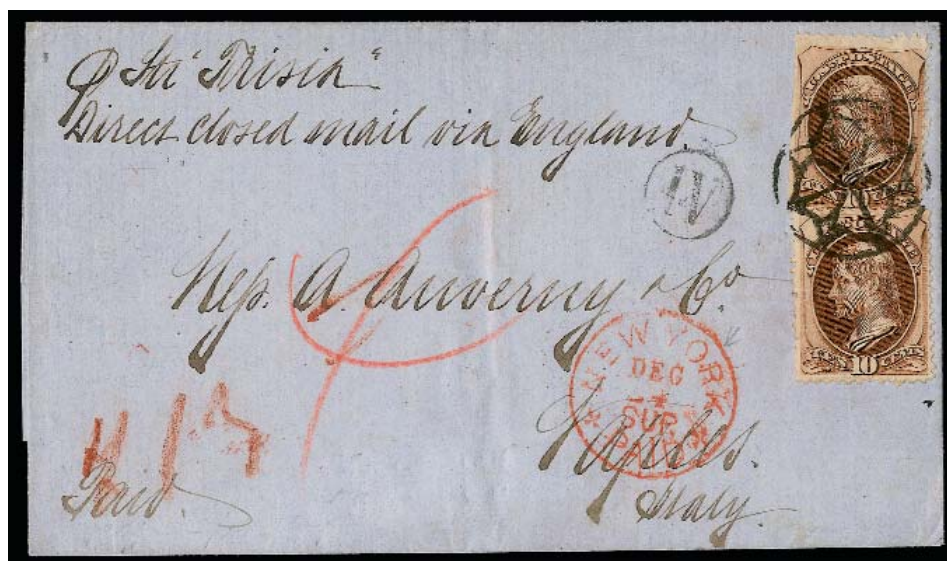 p Str "Frisia"
Direct closed mail via England.
IV
Mess. A. Auverny & Co
NEW YORK
DEC
4
SUP.
PAID
Naples.
Italy.
Paid.
10